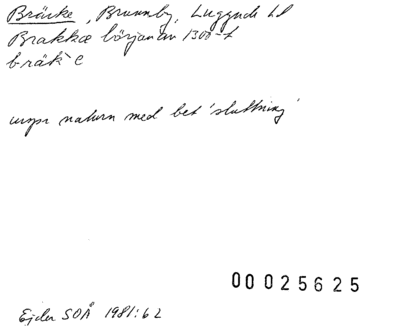 Bräcke, Brunnby, Luggude hd
Brakkæ början av 1300-t
bräk`e
urspr naturn med bet 'sluttning'
00025625
Ejder SOÅ 1981:62